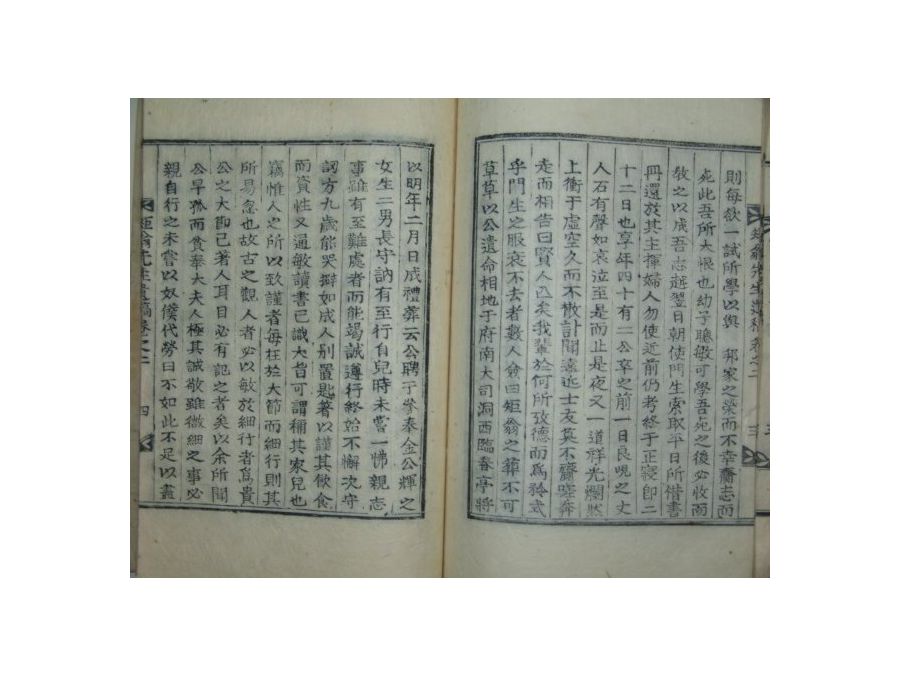 則每欲一試所學以與 邦家之榮而不幸齎志而
死此吾所大恨也幼子聰敏可學吾死之後必收而
敎之以成吾志越翌日朝使門生索取平日所借書
冊還於其主揮婦人勿使近前仍考終于正寢卽二
十二日也享年四十有二公卒之前一日良峴之丈
人石有聲如哀泣至是而止是夜又一道祥光爛然
上衝于虛空久而不散訃聞遠近士友莫不齎嗟奔
走而相告曰賢人亡矣我輩於何所攷德而爲矜式
乎門生之服衰不去者數人僉曰矩翁之葬不可
草草以公遺命相地于府南大司洞西臨春亭將
以明年二月日成禮葬云公聘于參奉金公輝之
女生二男長守訥有至行自兒時未嘗一怫親志
事雖有至難處者而能竭誠遵行終始不懈次守
詞方九歲能哭擗如成人別置匙著以謹其飮食
而資性又通敏讀書已識大旨可謂稱其家兒也
竊惟人之所以致謹者每在於大節而細行則其
所易忽也故古之觀人者必以敏於細行者爲貴
公之大節已著人耳目必有記之者矣以余所聞
公早孤而貧奉大夫人極其誠敬雖微細之事必
親自行之未嘗以奴僕代勞曰不如此不足以盡
矩翁先生遺稿卷之二 三
矩翁先生遺稿卷之二 四